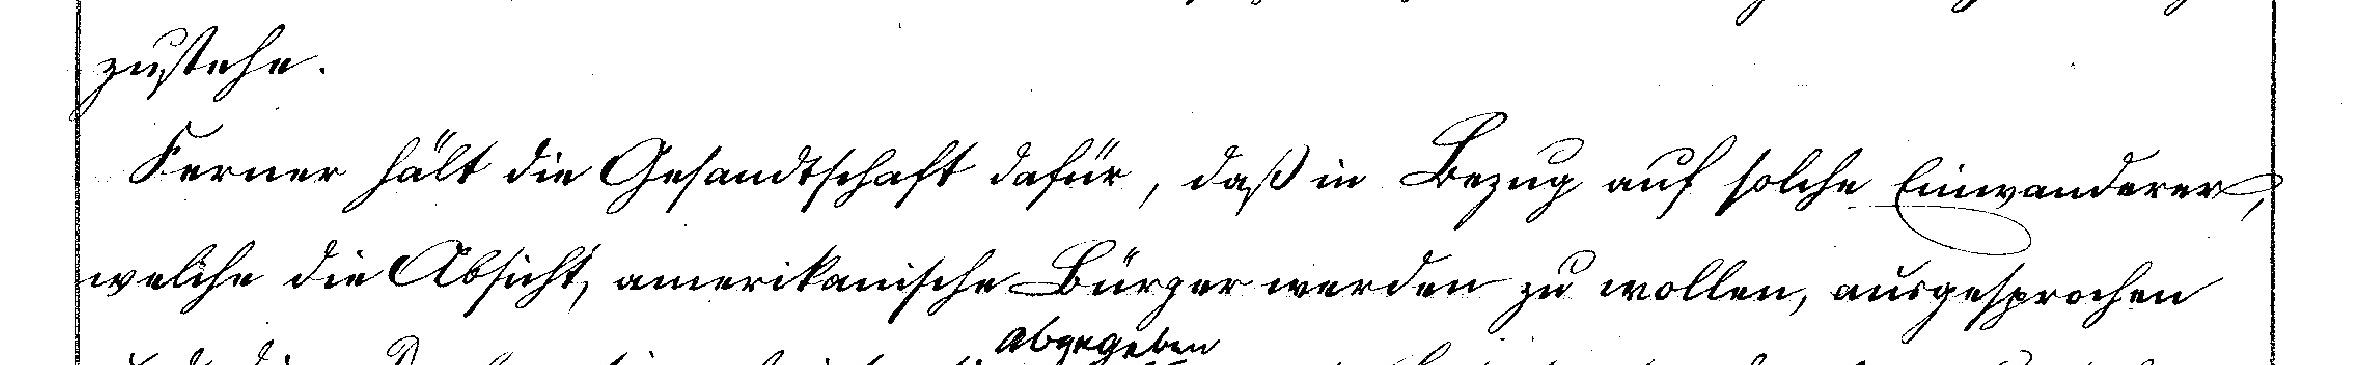 zustehe.
Ferner hält die Gesandtschaft dafür, daß in Bezug auf solche Einwanderer,
welche die Absicht, amerikanische Bürger werden zu wollen, ausgesprochen
abgegeben